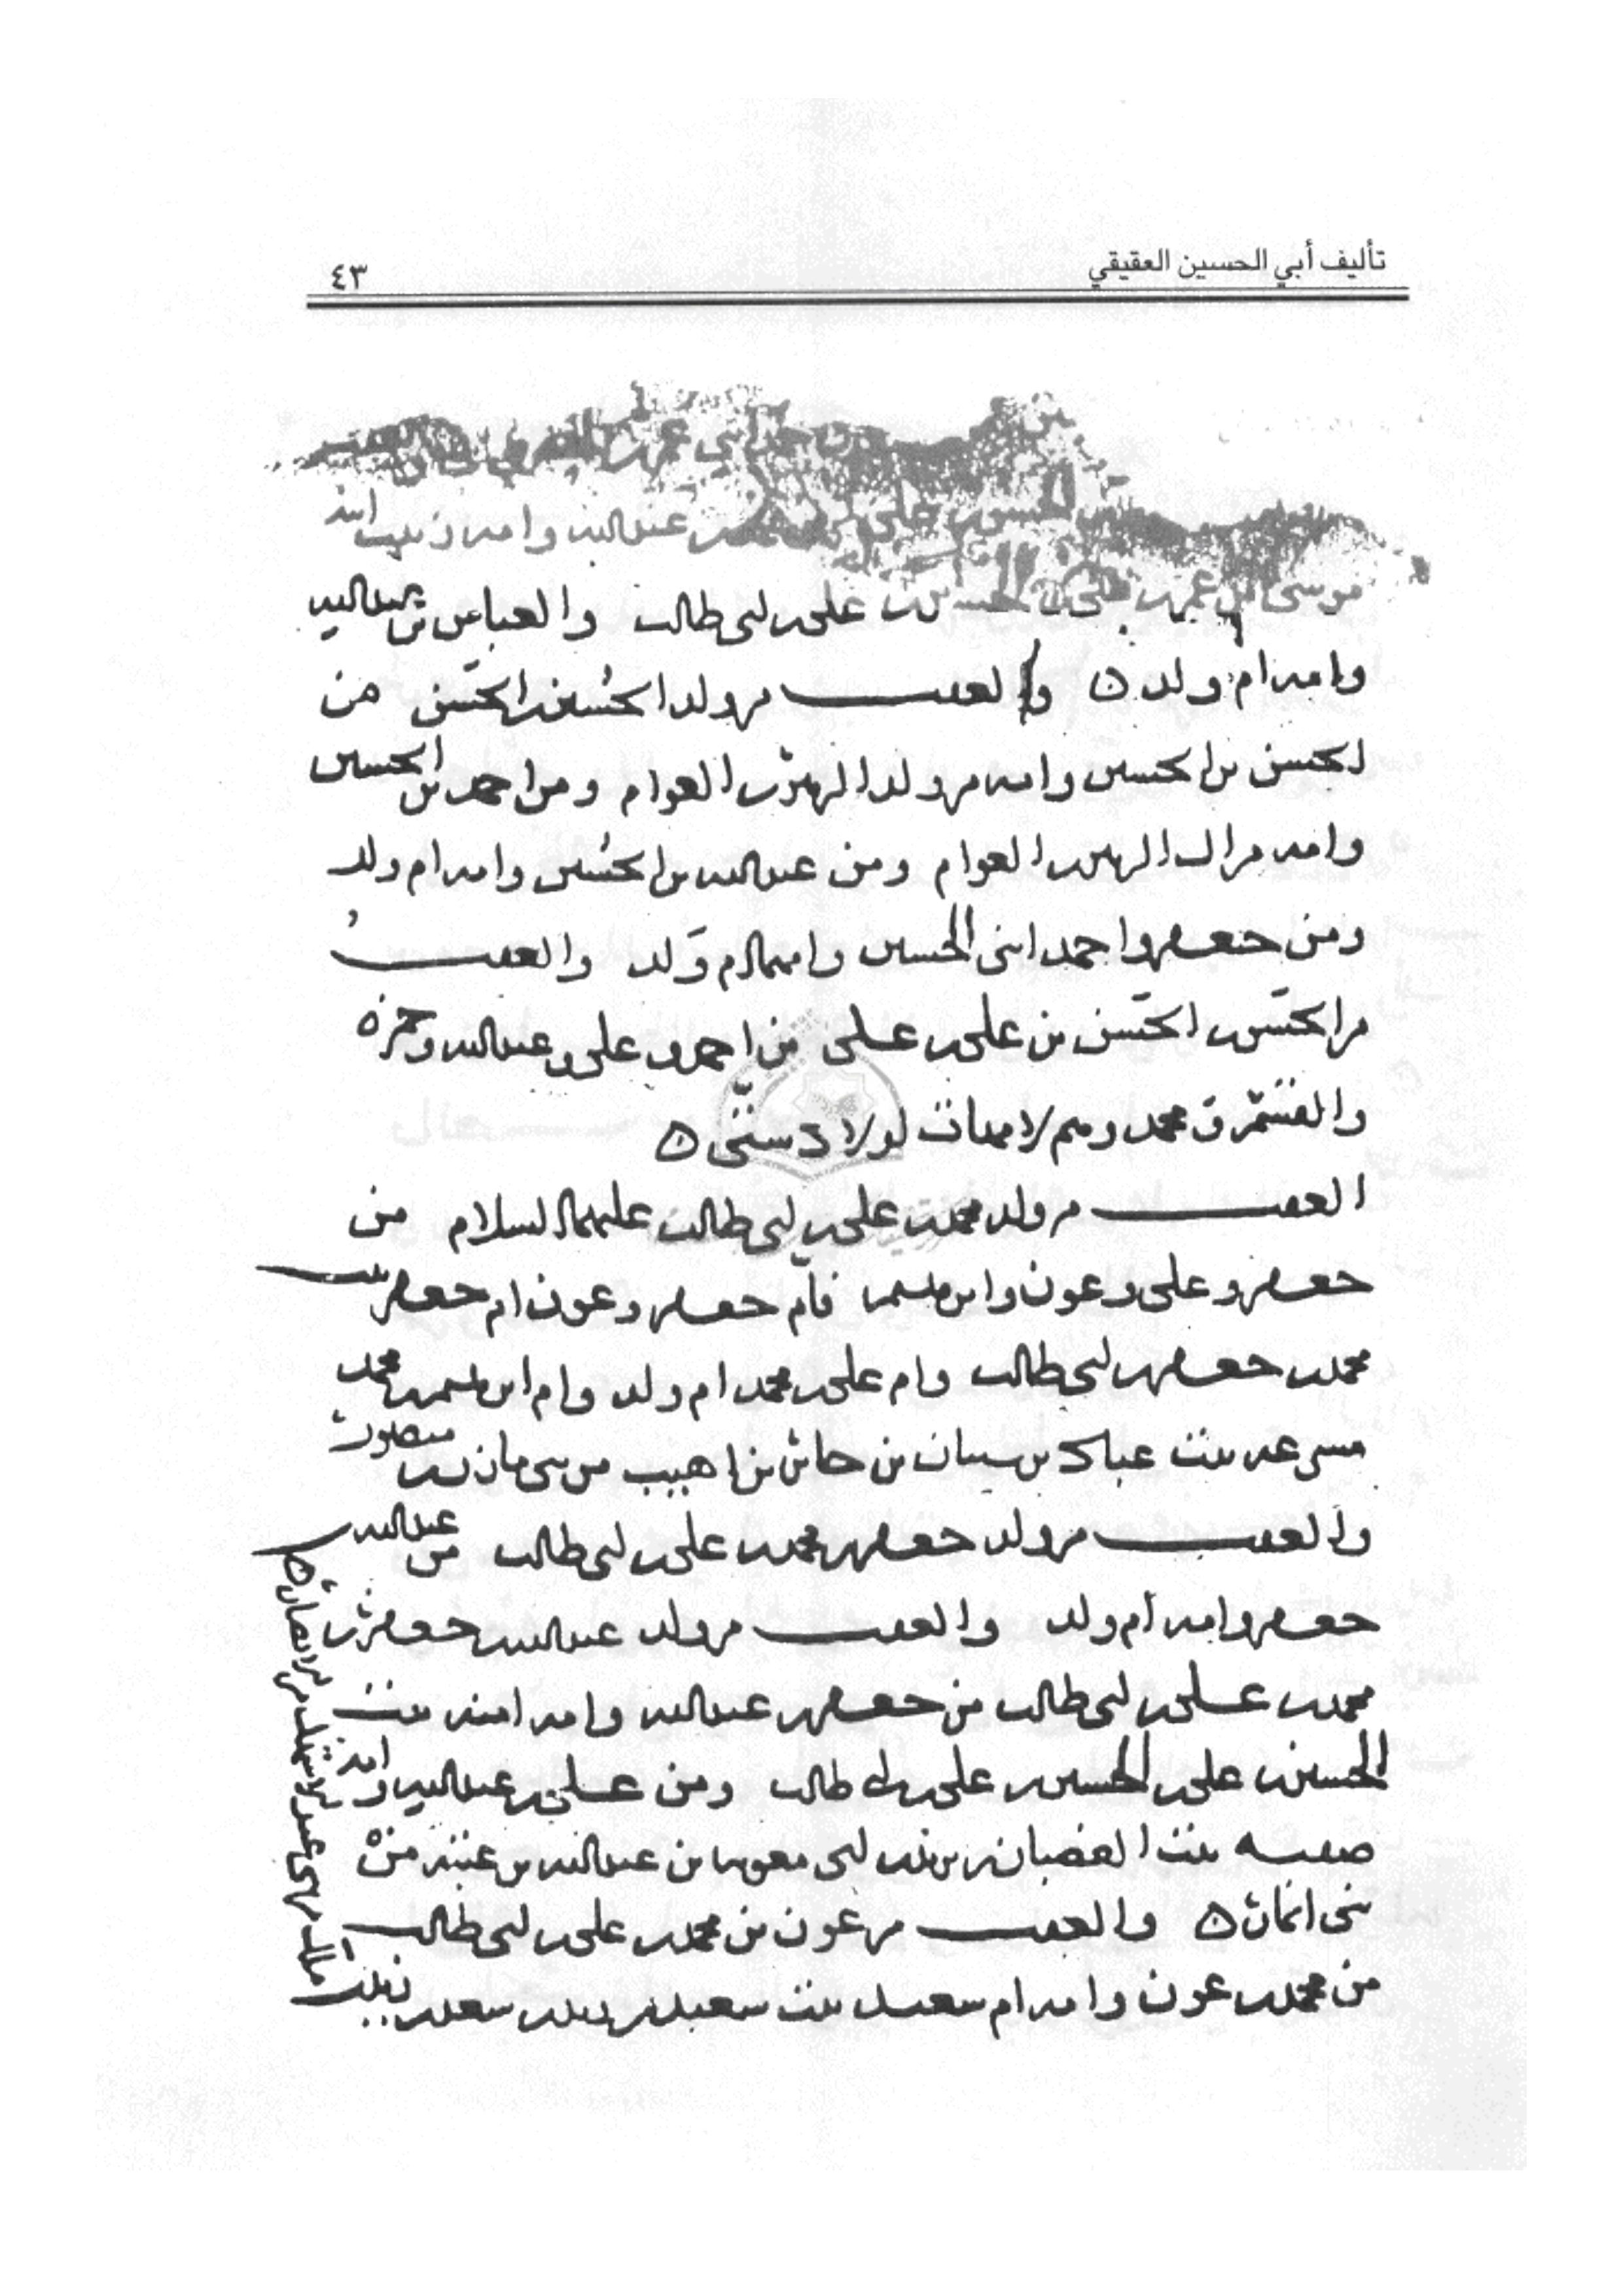 تأليف أبي الحسين العقيقي
٤٣
عبدالله وامه زينب ابنه
موسى بن عمر بن علي بن الحسين بن علي بن ابي طالب والعباس بن عبدالله
وامه ام ولد ه والعقب من ولد الحسين بن الحسن من
الحسن بن الحسين وامه من ولد الزبير بن العوام ومن احمد بن الحسين
وامه من ال الزبير بن العوام ومن عبدالله بن الحسين وامه ام ولد
ومن جعفر واحمد ابني الحسين وامهما ام ولد والعقب
من الحسن بن الحسن بن علي بن علي من احمد وعلي وعبدالله وحمزه
والقسم ومحمد وهم لامهات اولاد شتى ه
العقب من ولد محمد بن علي بن ابي طالب عليهما السلام من
جعفر وعلي وعون وابرهيم فام جعفر وعون ام جعفر بنت
محمد بن جعفر بن ابي طالب وام علي بن محمد ام ولد وام ابرهيم بن محمد
بنت عباد بن بن بن اهيب من بني مازن بن منصور
والعقب من ولد جعفر بن محمد بن علي بن ابي طالب من عبدالله بن
جعفر وامه ام ولد والعقب من ولد عبدالله بن جعفر بن
محمد بن علي بن ابي طالب من جعفر بن عبدالله وامه امنه بنت
الحسين بن علي بن الحسين بن علي بن ابي طالب ومن علي بن عبدالله وامه
صفيه بنت الغضبان بن يزيد بن ابي معويه بن عبدالله بن من
بني والعقب من عون بن محمد بن علي بن ابي طالب
من محمد بن عون وامه ام سعيد بنت سعيد بن زيد بن سعد بن زيد بن
مالك من بني عبد الاشهل من الانصار ه